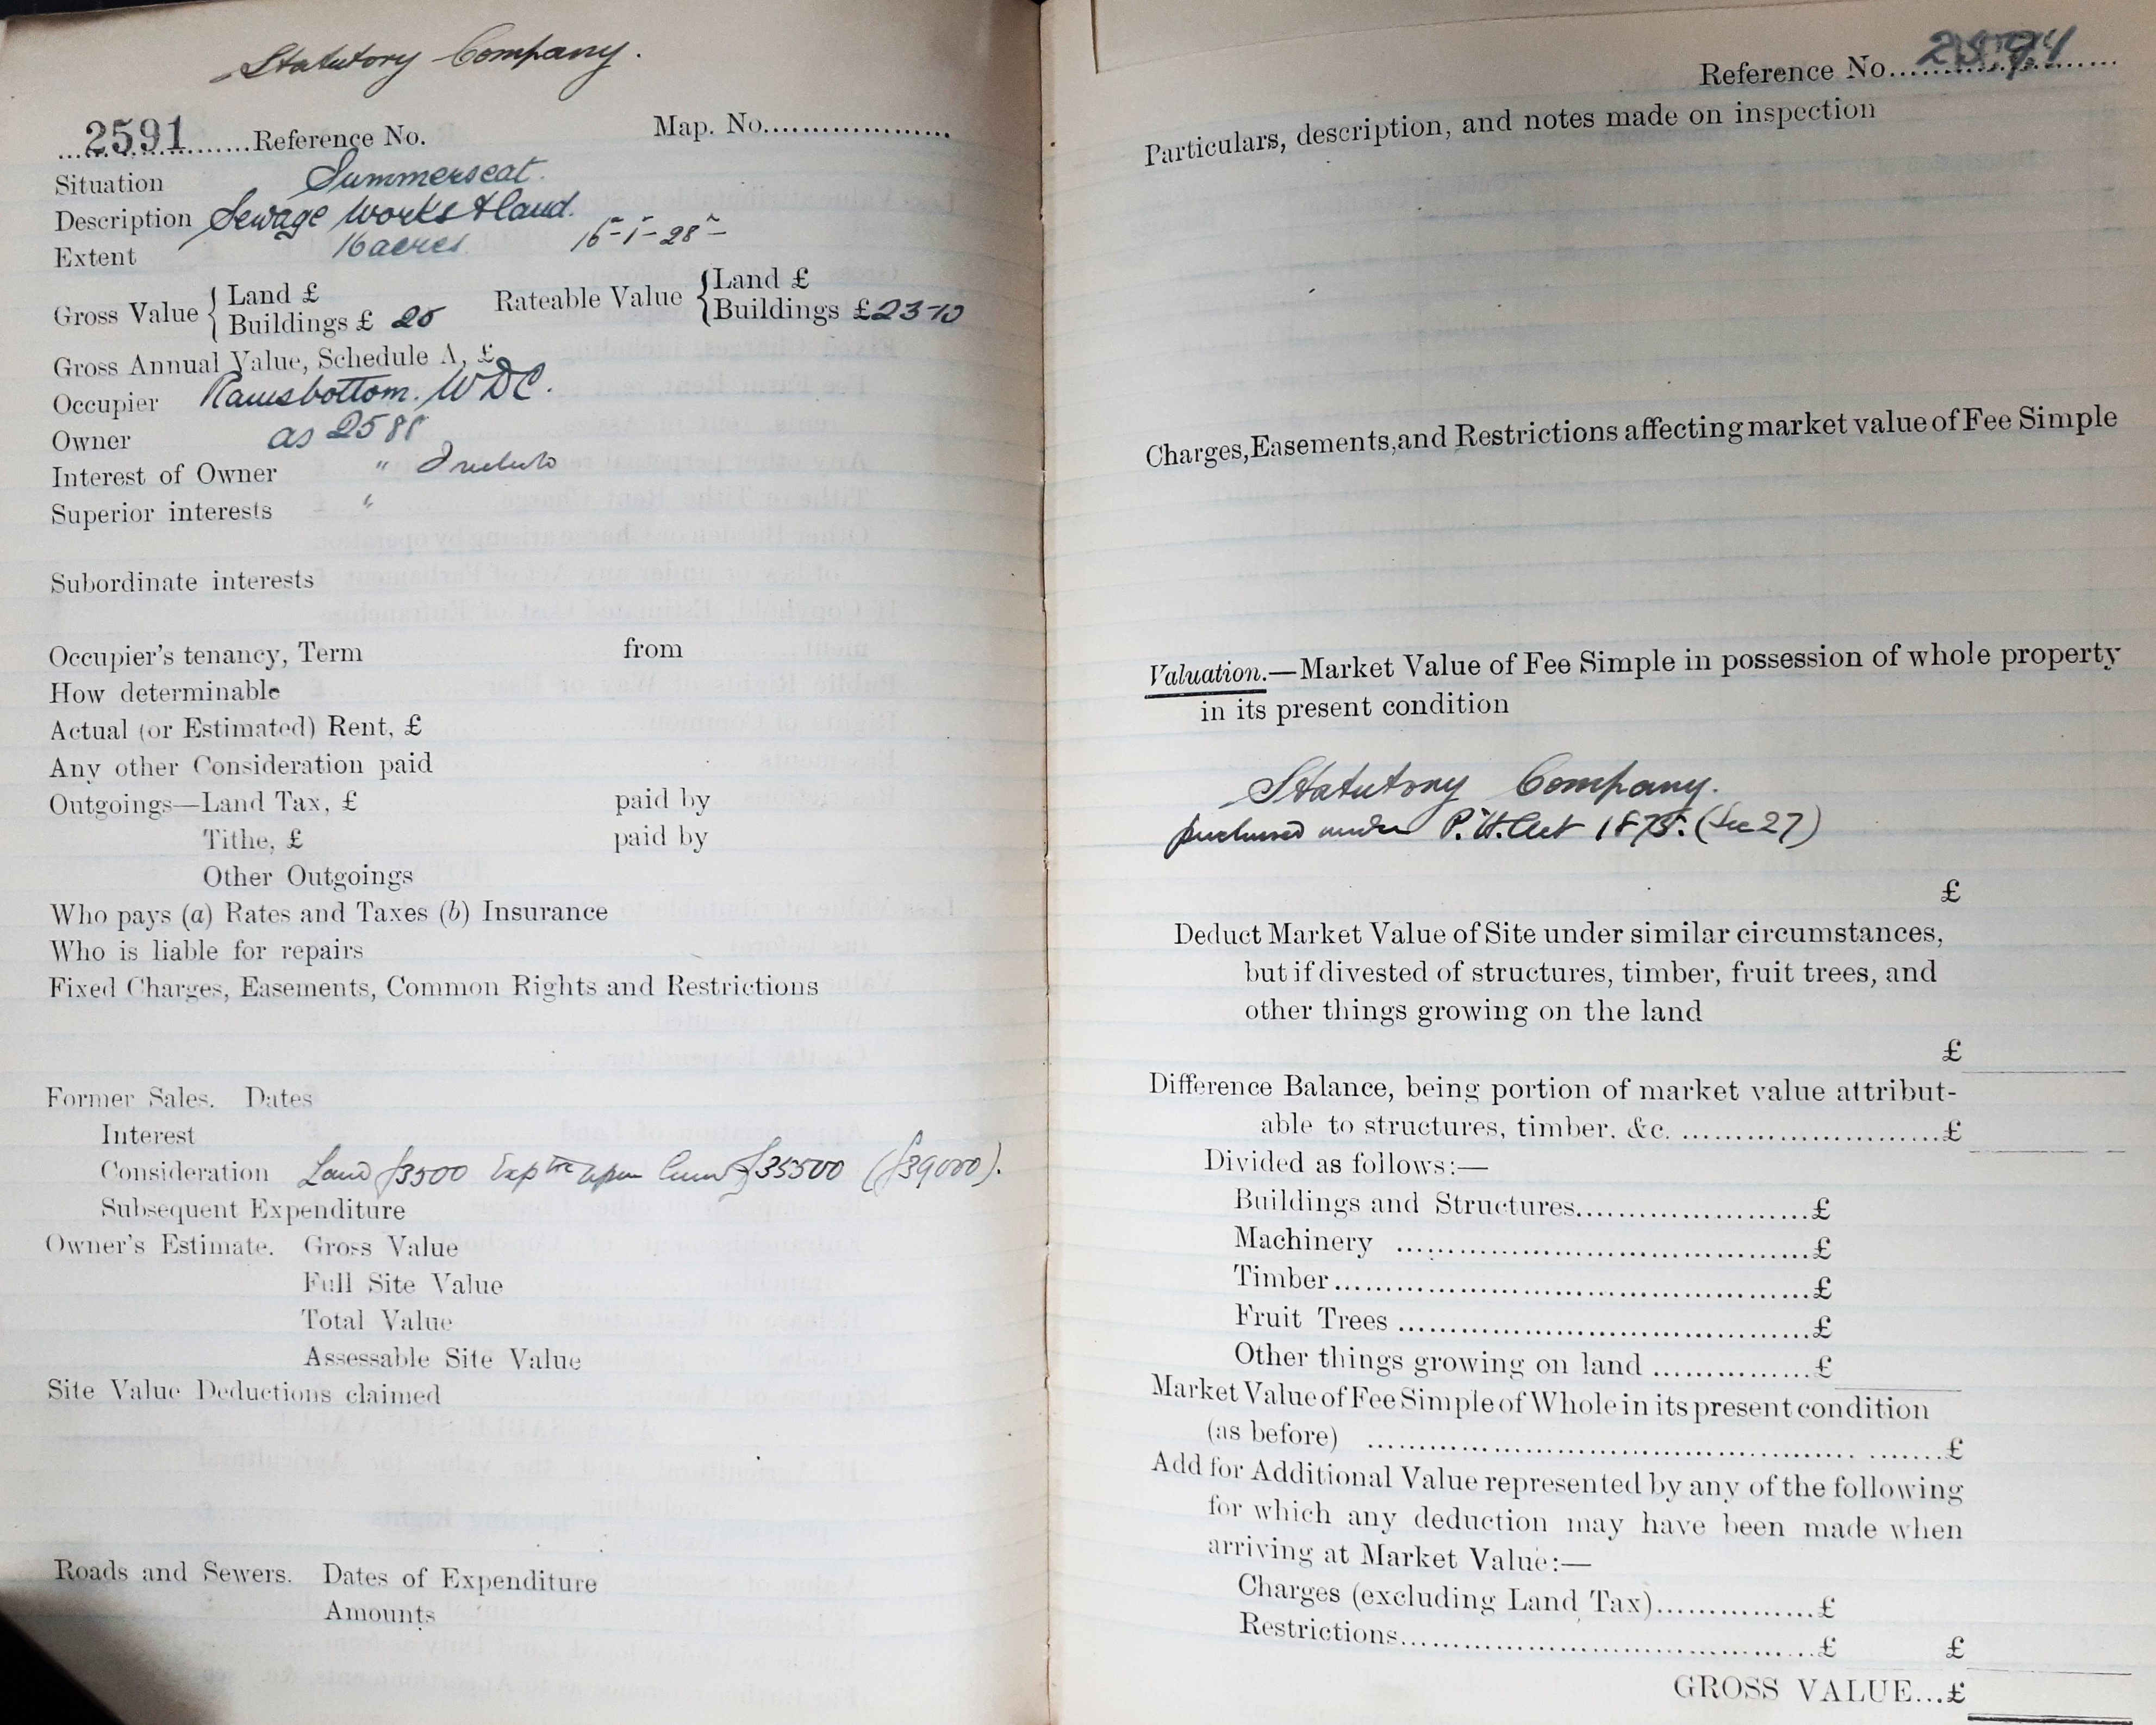 Statutory Company.
2591 Reference No. Map. No....................
Situation Summerseat.
Description Sewage Works & land.
Extent 16 acres 16-1-28
Gross Value { Land £
Buildings £ 25
Rateable Value { Land £
Buildings £ 23-10
Gross Annual Value, Schedule A, £
Occupier Ramsbottom. UDC.
Owner as 2588
Interest of Owner "
Superior interests "
Subordinate interests
Occupier's tenancy, Term from
How determinable
Actual (or Estimated) Rent, £
Any other Consideration paid
Outgoings—Land Tax, £ paid by
Tithe, £ paid by
Other Outgoings
Who pays (a) Rates and Taxes (b) Insurance
Who is liable for repairs
Fixed Charges, Easements, Common Rights and Restrictions
Former Sales. Dates
Interest
Consideration Land £3500 Exp re upon £35500 (£39000).
Subsequent Expenditure
Owner's Estimate. Gross Value
Full Site Value
Total Value
Assessable Site Value
Site Value Deductions claimed
Roads and Sewers. Dates of Expenditure
Amounts
Reference No. 2591
Particulars, description, and notes made on inspection
Charges, Easements, and Restrictions affecting market value of Fee Simple
Valuation.—Market Value of Fee Simple in possession of whole property
in its present condition
Statutory Company.
purchased under P. H. Act 1875. (Sec 27)
£
Deduct Market Value of Site under similar circumstances,
but if divested of structures, timber, fruit trees, and
other things growing on the land
£
Difference Balance, being portion of market value attribut-
able to structures, timber, &c. ..............................£
Divided as follows:—
Buildings and Structures........................£
Machinery ..........................................£
Timber................................................£
Fruit Trees ..........................................£
Other things growing on land ................£
Market Value of Fee Simple of Whole in its present condition
(as before) ..................................................£
Add for Additional Value represented by any of the following
for which any deduction may have been made when
arriving at Market Value:—
Charges (excluding Land Tax)................£
Restrictions..........................................£ £
GROSS VALUE...£